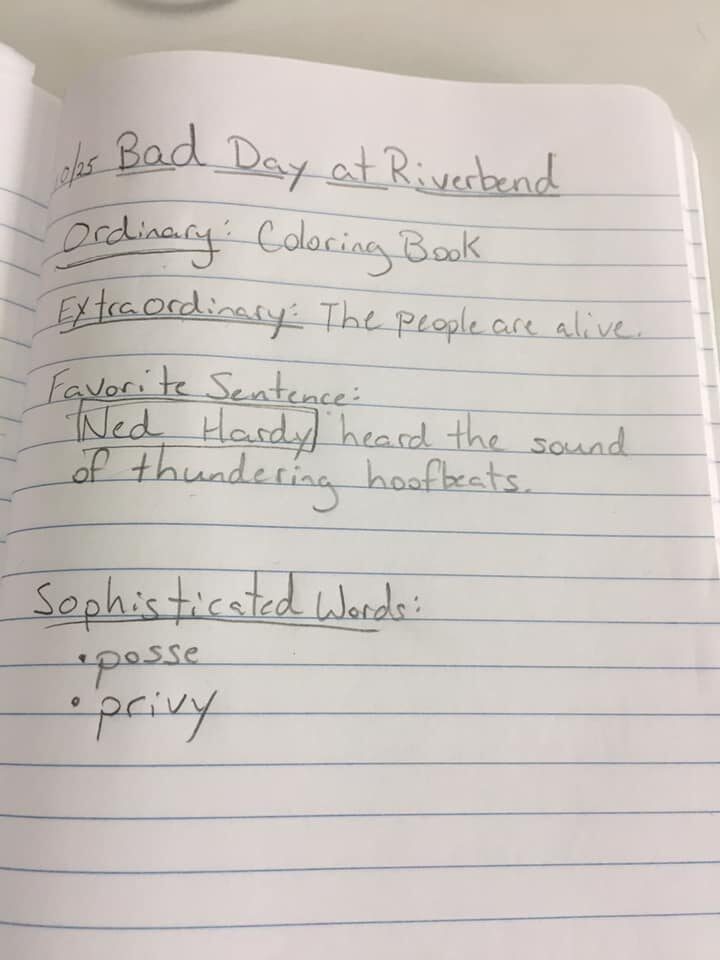 10/25 Bad Day at Riverbend
Ordinary: Coloring Book
Extraordinary: The people are alive.
Favorite Sentence:
Ned Hardy heard the sound
of thundering hoofbeats.
Sophisticated Words:
• posse
• privy